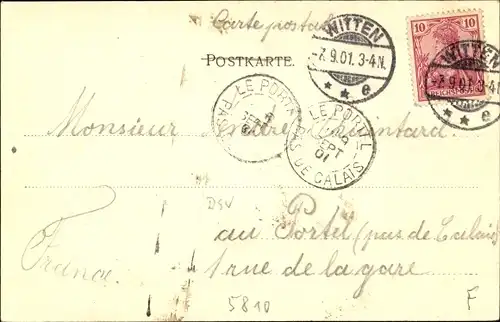 Carte postale
POSTKARTE.
WITTEN
-7.9.01.3-4N.
* * e
10 10
REICHSPOST
WITTEN
-7.9.01.3-4N.
* * e
LE PORTEL
SEPT
01
PAS
LE PORTEL
9
SEPT
01
PAS DE CALAIS
Monsieur André Quintard.
DSV
au Portel (pas de Calais)
France.
1 rue de la gare
5810
F